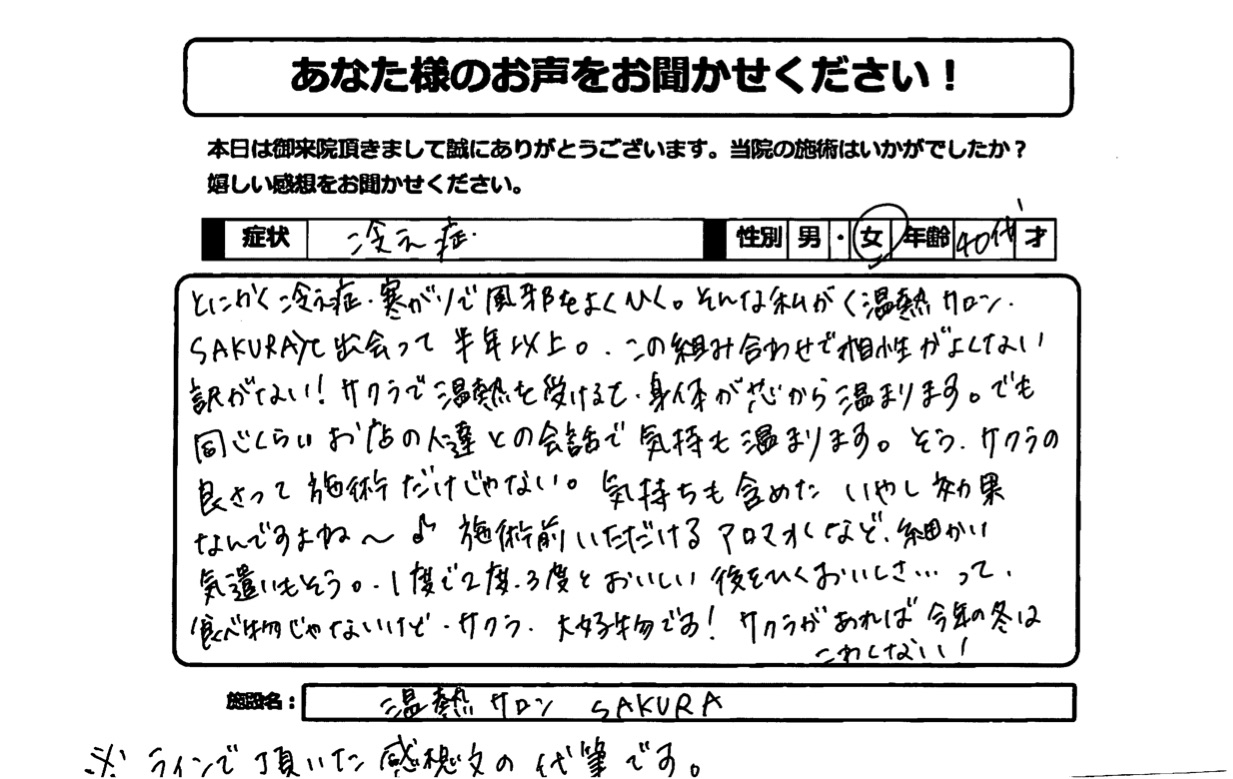 あなた様のお声をお聞かせください！
本日は御来院頂きまして誠にありがとうございます。当院の施術はいかがでしたか？
嬉しい感想をお聞かせください。
症状 冷え症 性別 男・女 年齢 40代 才
とにかく冷え症・寒がりで風邪をよくひく。そんな私が〈温熱サロン・
SAKURA〉と出会って半年以上。この組み合わせで相性がよくない
訳がない！サクラで温熱を受けると、身体が芯から温まります。でも
同じくらいお店の人達との会話で気持も温まります。そう、サクラの
良さって施術だけじゃない。気持ちも含めたいやし効果
なんですよね〜♪ 施術前いただけるアロマオイルなど、細かい
気遣いもそう。1度で2度、3度とおいしい後をひくおいしさ…って、
食べ物じゃないけど、サクラ、大好物です！サクラがあれば今年の冬は
こわくない！
施設名： 温熱サロン SAKURA
※ラインで頂いた感想文の代筆です。